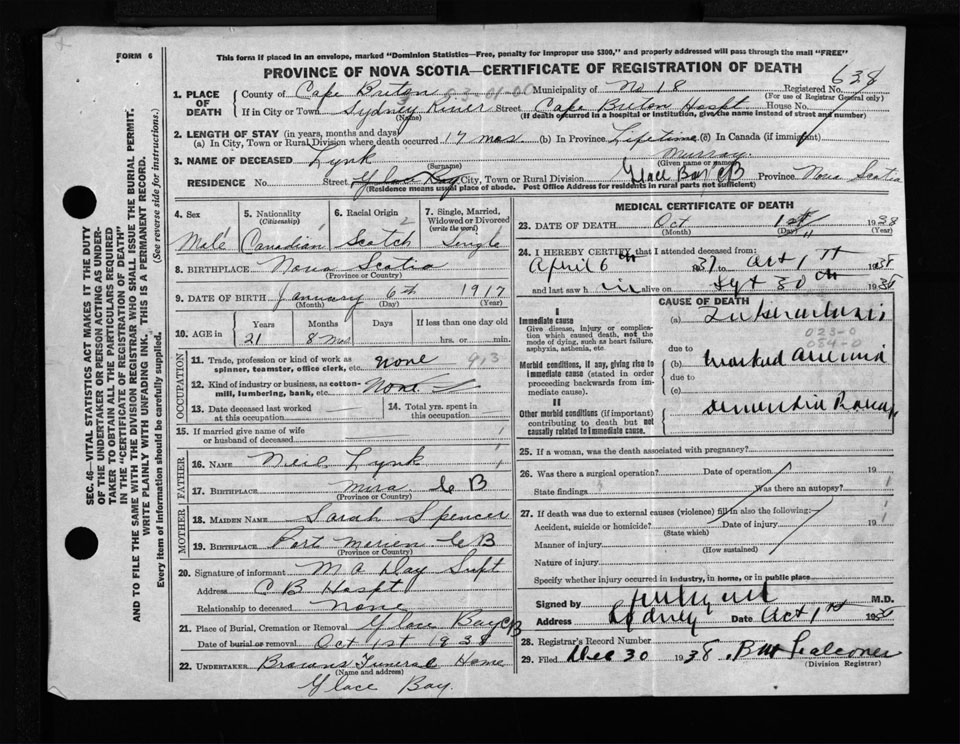 FORM 6
This form if placed in an envelope, marked "Dominion Statistics—Free, penalty for improper use $300," and properly addressed will pass through the mail "FREE"
PROVINCE OF NOVA SCOTIA—CERTIFICATE OF REGISTRATION OF DEATH
638
1. PLACE OF DEATH County of Cape Breton Municipality of No 18 Registered No.
(For use of Registrar General only)
If in City or Town Sydney River Street Cape Breton Hospt House No.
(Name) (If death occurred in a hospital or institution, give the name instead of street and number)
2. LENGTH OF STAY (in years, months and days)
(a) In City, Town or Rural Division where death occurred 17 mos (b) In Province Lifetime (c) In Canada (if immigrant)
3. NAME OF DECEASED Lynk Murray
(Surname) (Given name or names)
RESIDENCE No. Street Glace Bay City, Town or Rural Division Glace Bay CB Province Nova Scotia
(Residence means usual place of abode. Post Office Address for residents in rural parts not sufficient)
4. Sex
Male
5. Nationality (Citizenship)
Canadian
6. Racial Origin
Scotch
7. Single, Married, Widowed or Divorced (write the word)
Single
8. BIRTHPLACE Nova Scotia
(Province or Country)
9. DATE OF BIRTH January 6th 1917
(Month) (Day) (Year)
10. AGE in Years Months Days If less than one day old
21 8 mos hrs. or min.
OCCUPATION
11. Trade, profession or kind of work as spinner, teamster, office clerk, etc. none 913
12. Kind of industry or business, as cotton-mill, lumbering, bank, etc. None
13. Date deceased last worked at this occupation
14. Total yrs. spent in this occupation
15. If married give name of wife or husband of deceased
FATHER
16. NAME Neil Lynk
17. BIRTHPLACE Mira C B
(Province or Country)
MOTHER
18. MAIDEN NAME Sarah Spencer
19. BIRTHPLACE Port Morien C B
(Province or Country)
20. Signature of informant M A Day Supt
Address C B Hospt
Relationship to deceased None
21. Place of Burial, Cremation or Removal Glace Bay CB
Date of burial or removal Oct 1st 1938
22. UNDERTAKER Browns Funeral Home
(Name and address)
Glace Bay.
MEDICAL CERTIFICATE OF DEATH
23. DATE OF DEATH Oct 1st 1938
(Month) (Day) (Year)
24. I HEREBY CERTIFY that I attended deceased from:
April 6th 1937 to Oct 1st 1938
and last saw h im alive on Sept 30th 1938
CAUSE OF DEATH
I
Immediate cause
Give disease, injury or complication which caused death, not the mode of dying, such as heart failure, asphyxia, asthenia, etc.
(a) Tuberculosis
023-0
084-0
due to
(b) Marked anemia
Morbid conditions, if any, giving rise to immediate cause (stated in order proceeding backwards from immediate cause).
due to
(c)
II
Other morbid conditions (if important) contributing to death but not causally related to immediate cause.
Dementia Praecox
25. If a woman, was the death associated with pregnancy?
26. Was there a surgical operation? Date of operation 19
State findings Was there an autopsy?
27. If death was due to external causes (violence) fill in also the following:
Accident, suicide or homicide? Date of injury 19
(State which)
Manner of injury
(How sustained)
Nature of injury
Specify whether injury occurred in industry, in home, or in public place
Signed by M.D.
Address Sydney Date Oct 1st 1938
28. Registrar's Record Number
29. Filed Dec 30 1938. Falconer
(Division Registrar)
SEC. 46—VITAL STATISTICS ACT MAKES IT THE DUTY
OF THE UNDERTAKER OR PERSON ACTING AS UNDER-
TAKER TO OBTAIN ALL THE PARTICULARS REQUIRED
IN THE "CERTIFICATE OF REGISTRATION OF DEATH"
AND TO FILE THE SAME WITH THE DIVISION REGISTRAR WHO SHALL ISSUE THE BURIAL PERMIT.
WRITE PLAINLY WITH UNFADING INK. THIS IS A PERMANENT RECORD.
Every item of information should be carefully supplied. (See reverse side for instructions.)